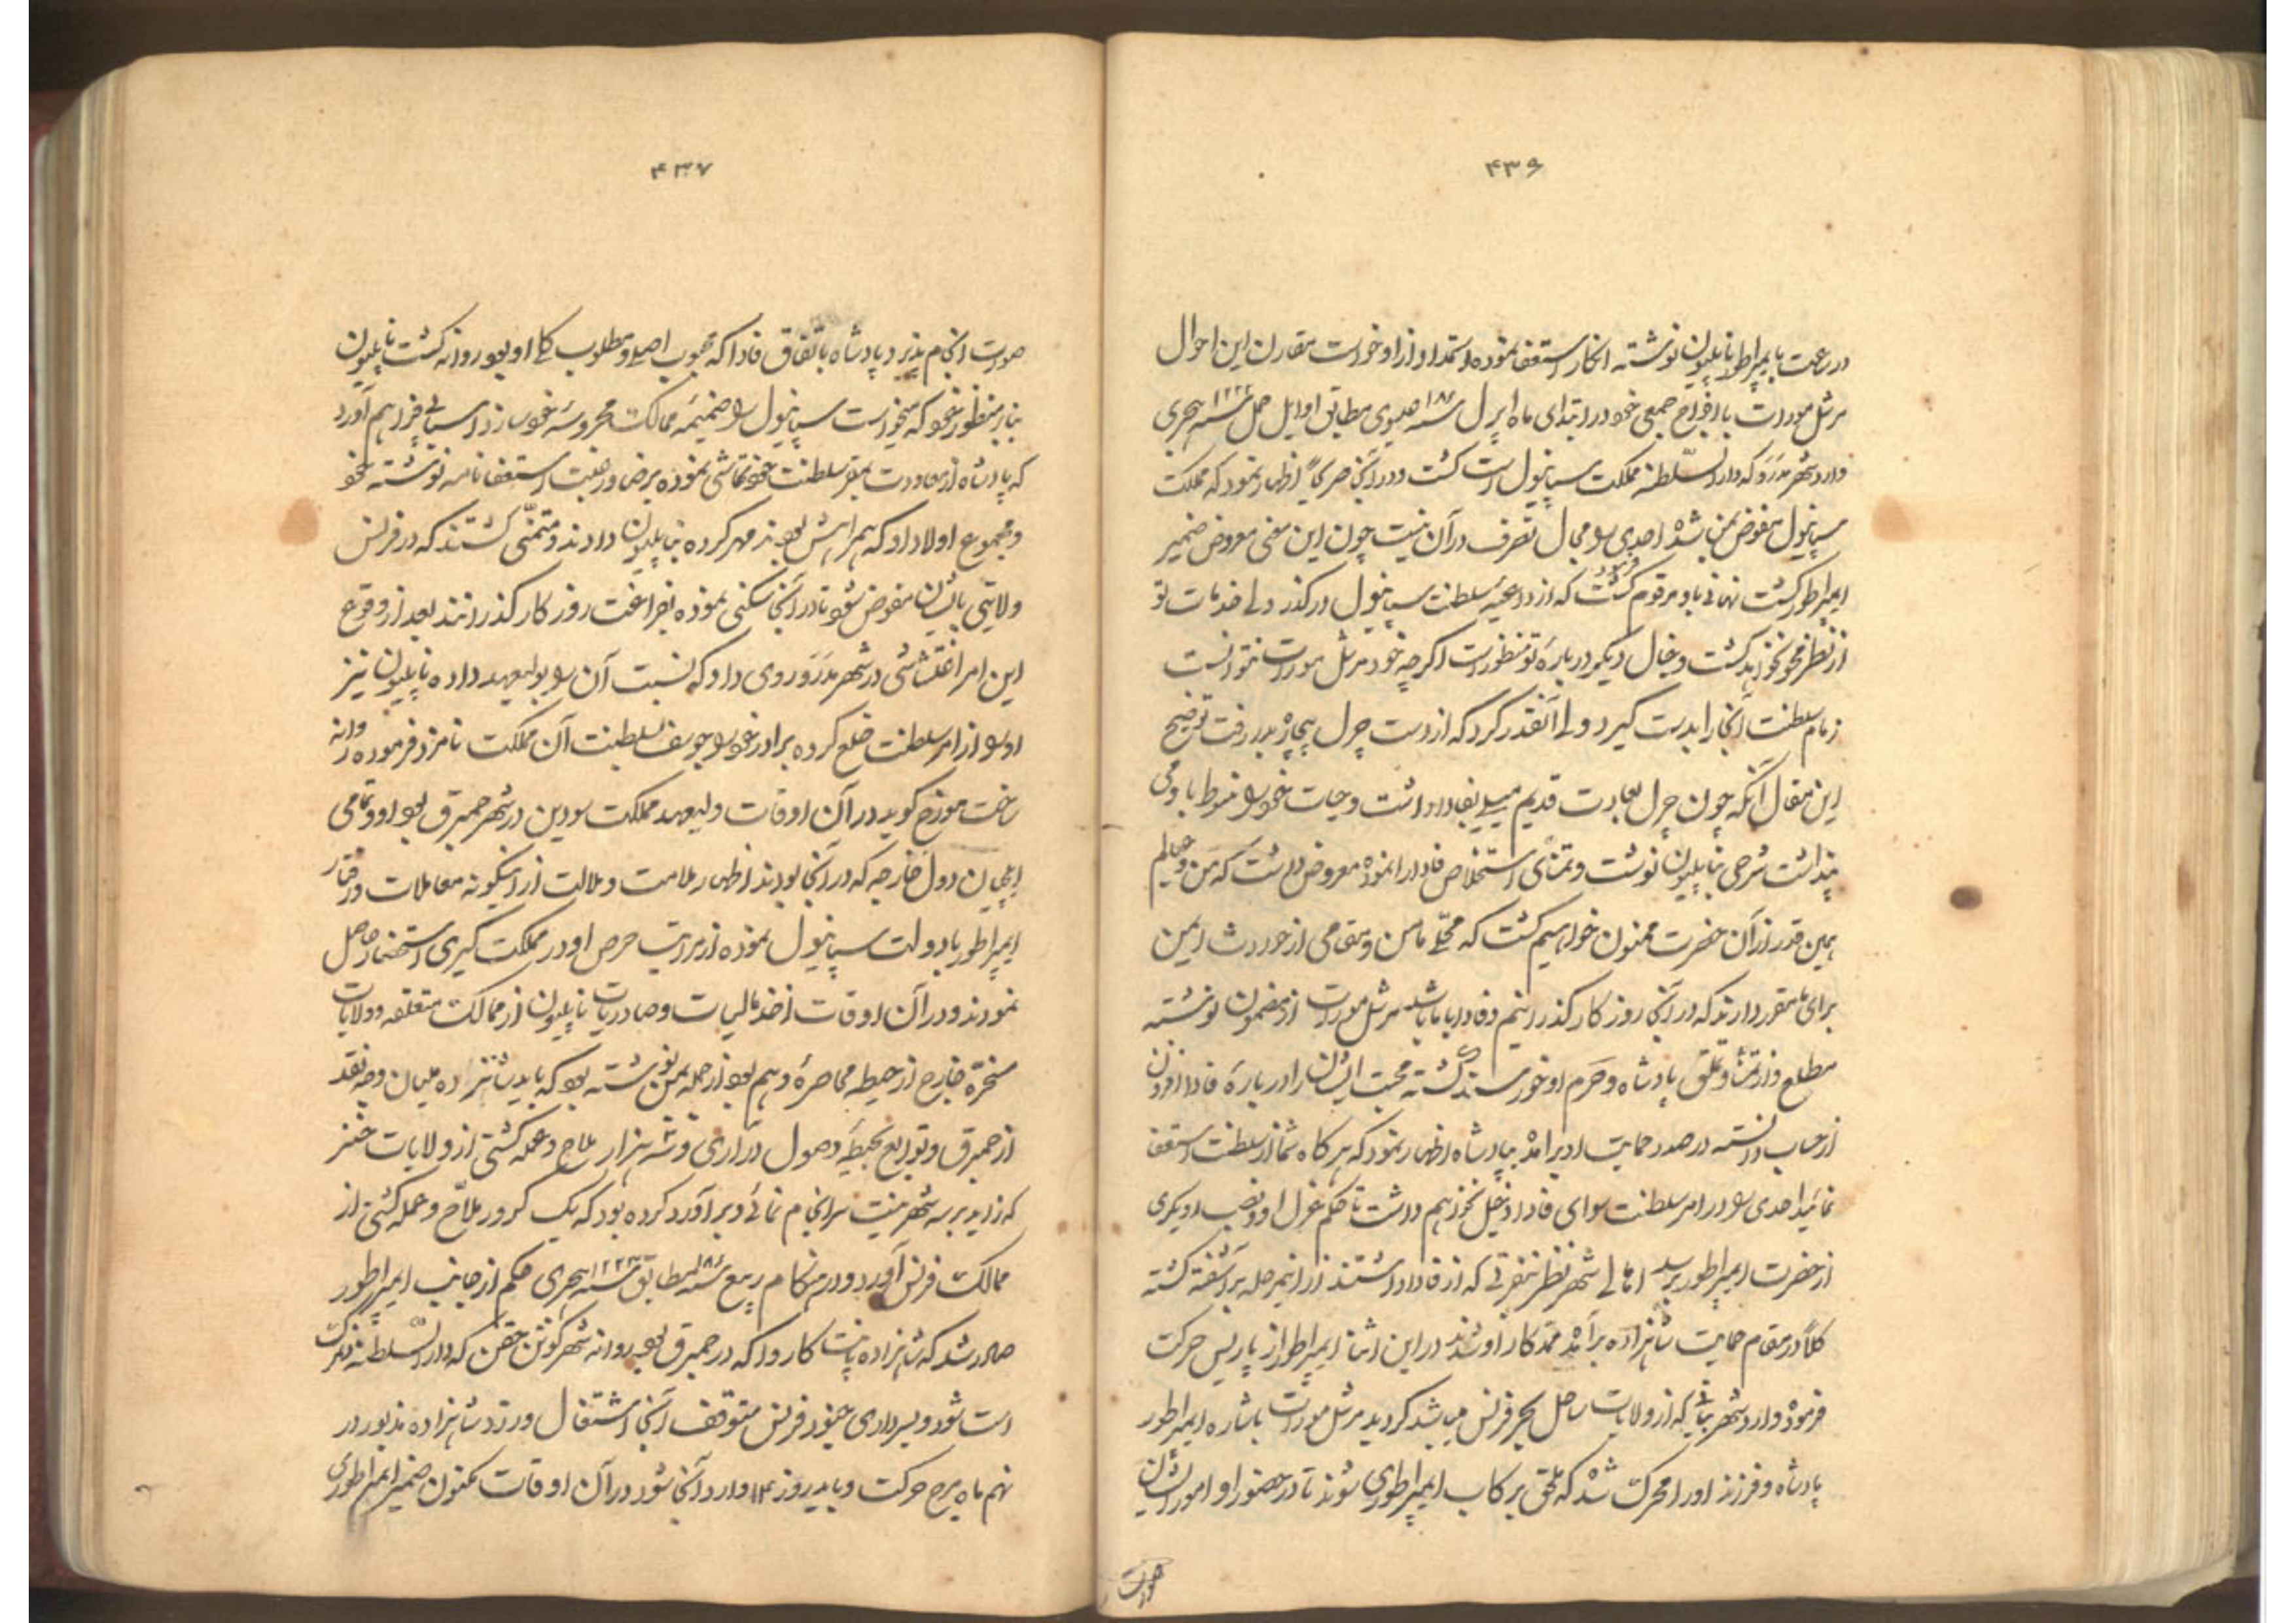 ۴۳۶
در ساعت بایمپراطور ناپلیون نوشته انکار استعفا نموده استمداد از او خواست مقارن این احوال
مرشل مورات با افواج جمعی خود در ابتدای ماه اپرل سنه ۱۸۰۸ عیسوی مطابق اوایل حمل سنه ۱۲۲۳ هجری
وارد شهر مدرو که دار السلطنه مملکت سپانیول است گشت و در آنجا صریحاً اظهار نمود که مملکت
سپانیول مفوض بمن شده احدی را مجال تصرف در آن نیست چون این معنی معروض ضمیر
ایمپراطور گشت نهانی باو مرقوم که از داعیه سلطنت سپانیول در گذر ولی خدمات تو
از نظر محو نخواهد گشت و خیال دیگر در باره تو منظور است اگرچه خود مرشل مورات نتوانست
زمام سلطنت آنجا را بدست گیرد ولی آنقدر کرد که از دست چرل بیچاره بدر رفت توضیح
این مقال آنکه چون چرل بعادت قدیم میلی بفادا داشت و حیات خود را منوط باو می
پنداشت شرحی بناپلیون نوشت و تمنای استخلاص فادا را نموده معروض داشت که من و عیالم
همین قدر از آن حضرت ممنون خواهیم گشت که محلی مامن و مقامی از حوادث ایمن
برای ما مقرر دارند که در آنجا روزگار گذرانیم و فادا با ما باشد مرشل مورات از مضمون نوشته
مطلع و از تمنا و تملق پادشاه و حرم او خورسند گشته محبت ایشان را در باره فادا افزون
از حساب دانسته در صدد حمایت او برآمد بپادشاه اظهار نمود که هرگاه شما از سلطنت استعفا
نمائید احدی را در امر سلطنت سوای فادا دخیل نخواهم داشت تا حکم عزل او و نصب دیگری
از حضرت ایمپراطور برسد اهالی شهر نظر بنفرتی که از فادا داشتند از اینمرحله برآشفته گشته
کلاً در مقام حمایت شاهزاده برآمده ممد کار او شدند در این اثنا ایمپراطور از پاریس حرکت
فرموده وارد شهر که از ولایات ساحل بحر فرنس میباشد گردید مرشل مورات باشاره ایمپراطور
پادشاه و فرزند او را محرک شده که ملحق برکاب ایمپراطوری شوند تا در حضور او امور ایشان
صورت
۴۳۷
صورت انجام پذیرد پادشاه باتفاق فادا که محبوب اصلی و مطلوب کلی او بود روانه گشت ناپلیون
بنابر منظور خود که میخواست سپانیول را ضمیمه ممالک محروسه خود سازد اسبابی فراهم آورد
که پادشاه از معاودت بمقر سلطنت خود تحاشی نموده برضا و رغبت استعفا نامه نوشته خود
و مجموع اولاد او که همراهش بودند مهر کرده بناپلیون دادند و متمنی گشتند که در فرنس
ولایتی بایشان مفوض شود تا در آنجا سکنی نموده بفراغت روزگار گذرانند بعد از وقوع
این امر اغتشاشی در شهر مدرو روی داد که نسبت آن را بولیعهد داده ناپلیون نیز
او را از امر سلطنت خلع کرده برادر خود را جوسف بسلطنت آن مملکت نامزد فرموده روانه
ساخت مورخ گوید در آن اوقات ولیعهد مملکت سودین در شهر حمبرق بود او و تمامی
ایلچیان دول خارجه که در آنجا بودند اظهار ملامت و ملالت از اینگونه معاملات و رفتار
ایمپراطور با دولت سپانیول نموده از مراتب حرص او در مملکت گیری استحضار حاصل
نمودند و در آن اوقات اخذ مالیات و صادریات ناپلیون از ممالک متعلقه و ولایات
مسخره خارج از حیطه محاصره وهم بود از جمله بمن نوشته بود که باید شانزده ملیان وجه نقد
از حمبرق و توابع بحیطه وصول درآری و سه هزار ملاح و عمله کشتی از ولایات
که زاید بر سه شهر نیست سرانجام نمائی و برآورد کرده بود که یک کرور ملاح و عمله کشتی از
ممالک فرنس آورد و در هنگام ربیع سنه ۱۸۰۸ مطابق سنه ۱۲۲۳ هجری حکم از جانب ایمپراطور
صادر شد که شاهزاده پانت کاروا که در حمبرق بود روانه شهر کوپن حقن که دار السلطنه دنمرک
است شود و بسرداری جنود فرنس متوقف آنجا اشتغال ورزد شاهزاده مذبور در
نهم ماه مرچ حرکت و باید روز ۱۲ وارد آنجا شود در آن اوقات مکنون ضمیر ایمپراطوری